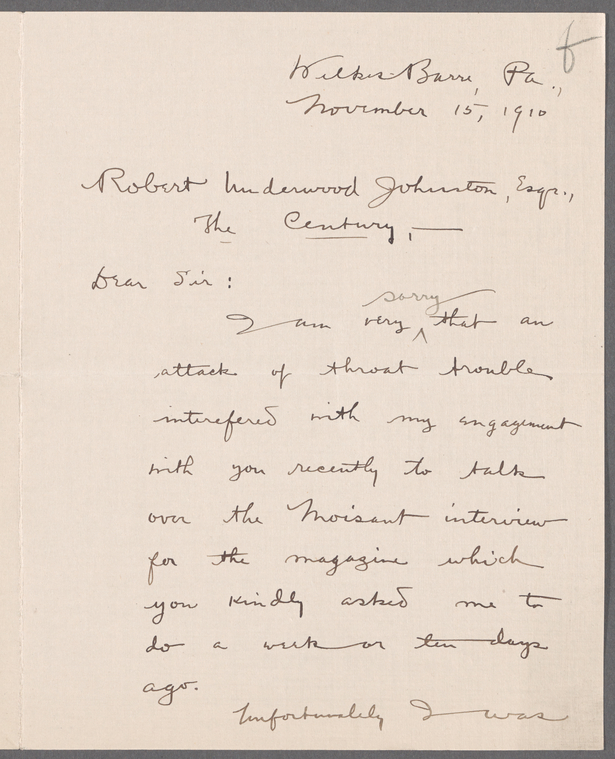 Wilkes-Barre, Pa.,
November 15, 1910
Robert Underwood Johnston, Esqr.,
The Century, —
Dear Sir:
sorry
I am very ^ that an
attack of throat trouble
interefered with my engagement
with you recently to talk
over the Moisant interview
for the magazine which
you kindly asked me to
do a week or ten days
ago.
Unfortunately I was